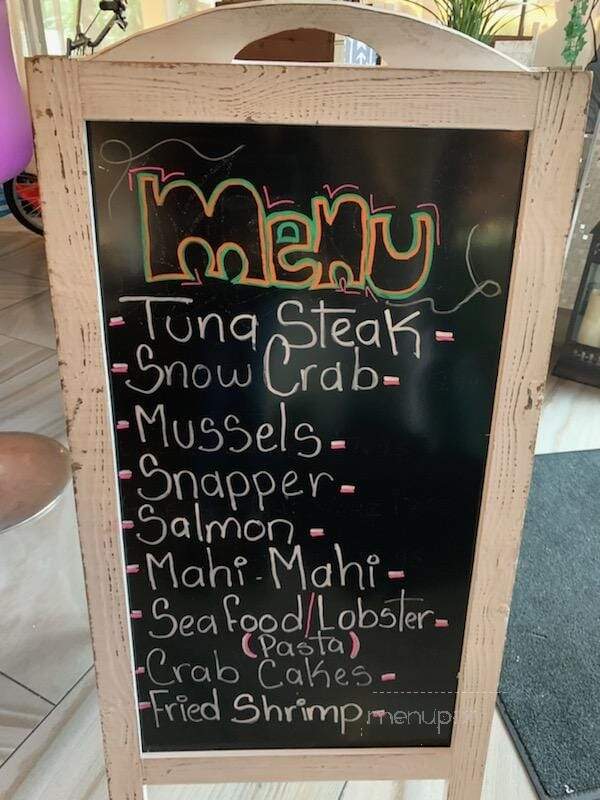 Menu
- Tuna Steak -
- Snow Crab -
- Mussels -
- Snapper -
- Salmon -
- Mahi-Mahi -
- Seafood/Lobster -
(Pasta)
- Crab Cakes -
- Fried Shrimp -